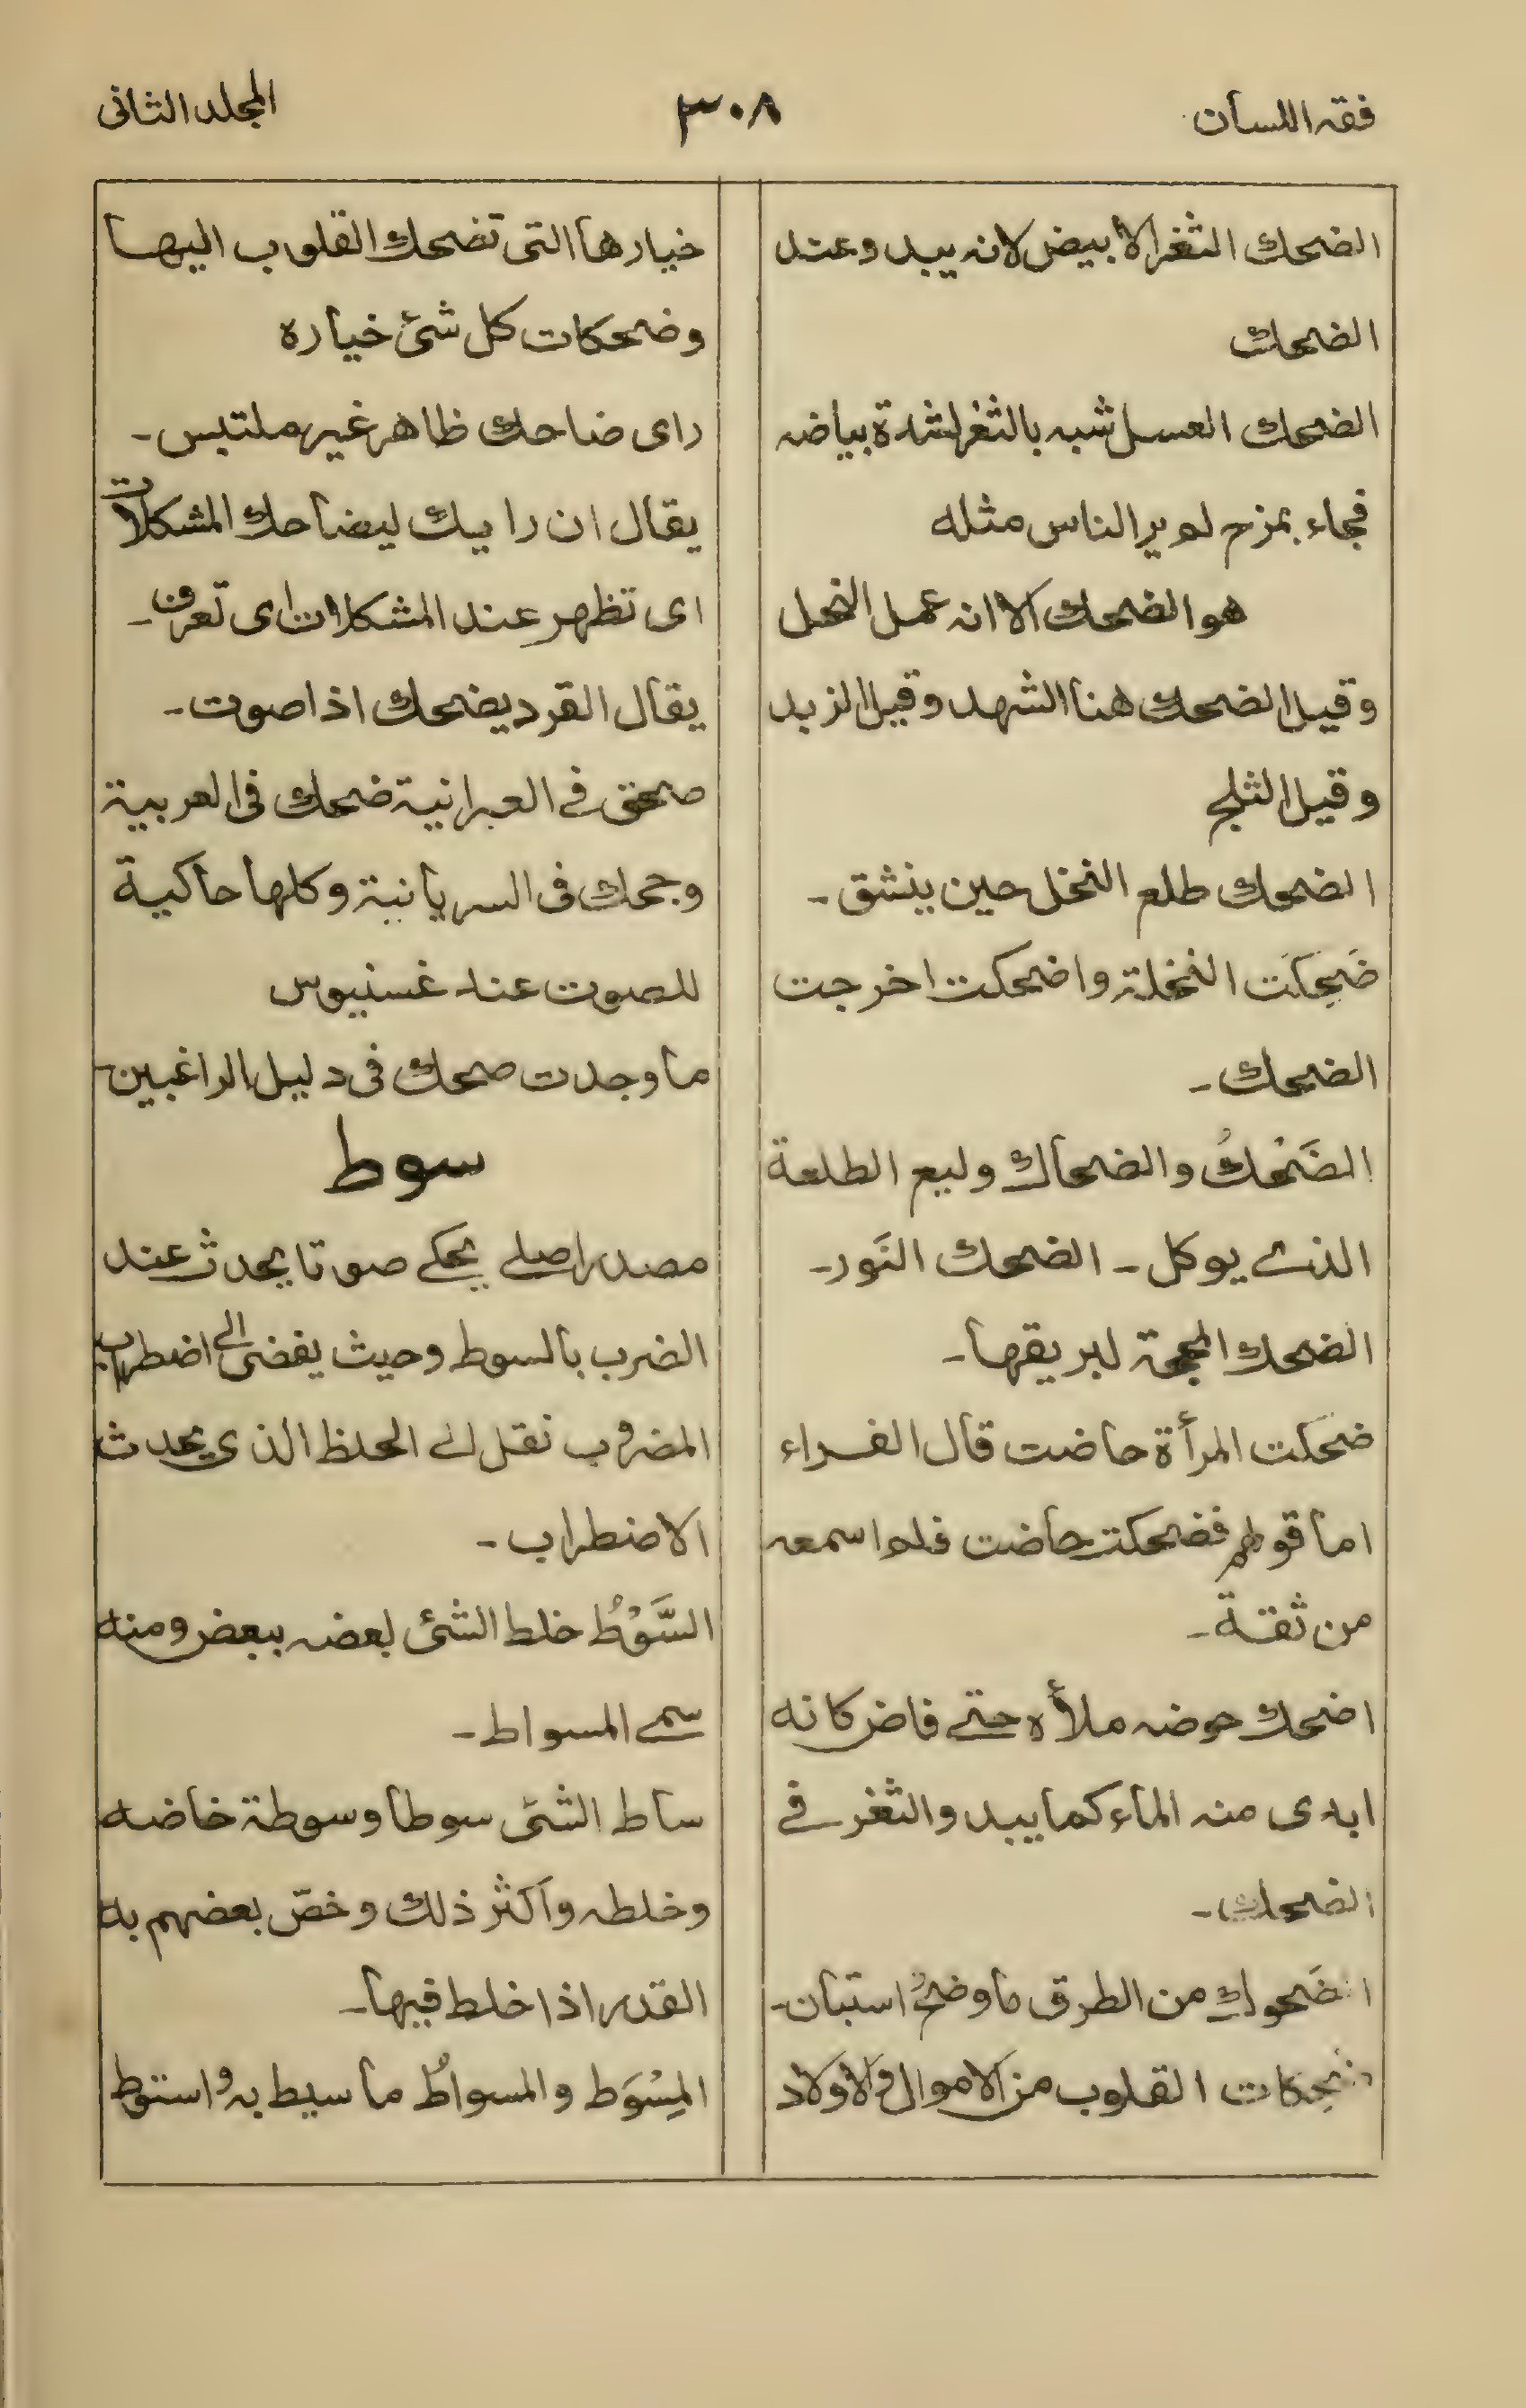 فقه اللسان
٣٠٨
المجلد الثانی
الضحك الثغر الابيض لانه يبدو عند
الضحك
الضحك العسل شبه بالثغر لشدة بياضه
فجاء بمزج لم ير الناس مثله
هو الضحك الا انه عمل النحل
وقيل الضحك هنا الشهد وقيل الزبد
وقيل الثلج
الضحك طلع النخل حين ينشق -
ضَحِكَت النخلة واضحكت اخرجت
الضحك -
الضَحْكُ والضحاك وليع الطلعة
الذے يوكل - الضحك النَور -
الضحك المحجة لبريقها -
ضحكت المرأة حاضت قال الفراء
اما قولهم فضحكت حاضت فلم اسمعه
من ثقة -
اضحك حوضه ملأه حتے فاض كانه
ابدى منه الماء كما يبدو الثغر فے
الضحك -
الضَحوك من الطرق ما وضحُ استبان -
ضحكات القلوب من الاموال والاولاد
خيارها التى تضحك القلوب اليها
وضحكات كل شئ خياره
راى ضاحك ظاهر غير ملتبس -
يقال ان رابيك ليضاحك المشكلات
اى تظهر عند المشكلات اى تعرف -
يقال القرد يضحك اذا صوت -
صحق فے العبرانية ضحك فى العربية
وجحك فى السريانية وكلها حاكية
للصوت عند غسنيوس
ما وجدت صحك فى دليل الراغبين -
سوط
مصدر اصلے يحكے صوتا يحدث عند
الضرب بالسوط وحيث يفضى الے اضطراب
المضروب نقل الے الحلظ الذى يحدث
الاضطراب -
السَّوْطُ خلط الشئ بعضه ببعض ومنه
سمے المسواط -
ساط الشئ سوطا وسوطة خاضه
وخلطه واكثر ذلك وخصّ بعضهم به
القدر اذا خلط فيها -
المِسْوَط والمسواطُ ما سيط به واستوط